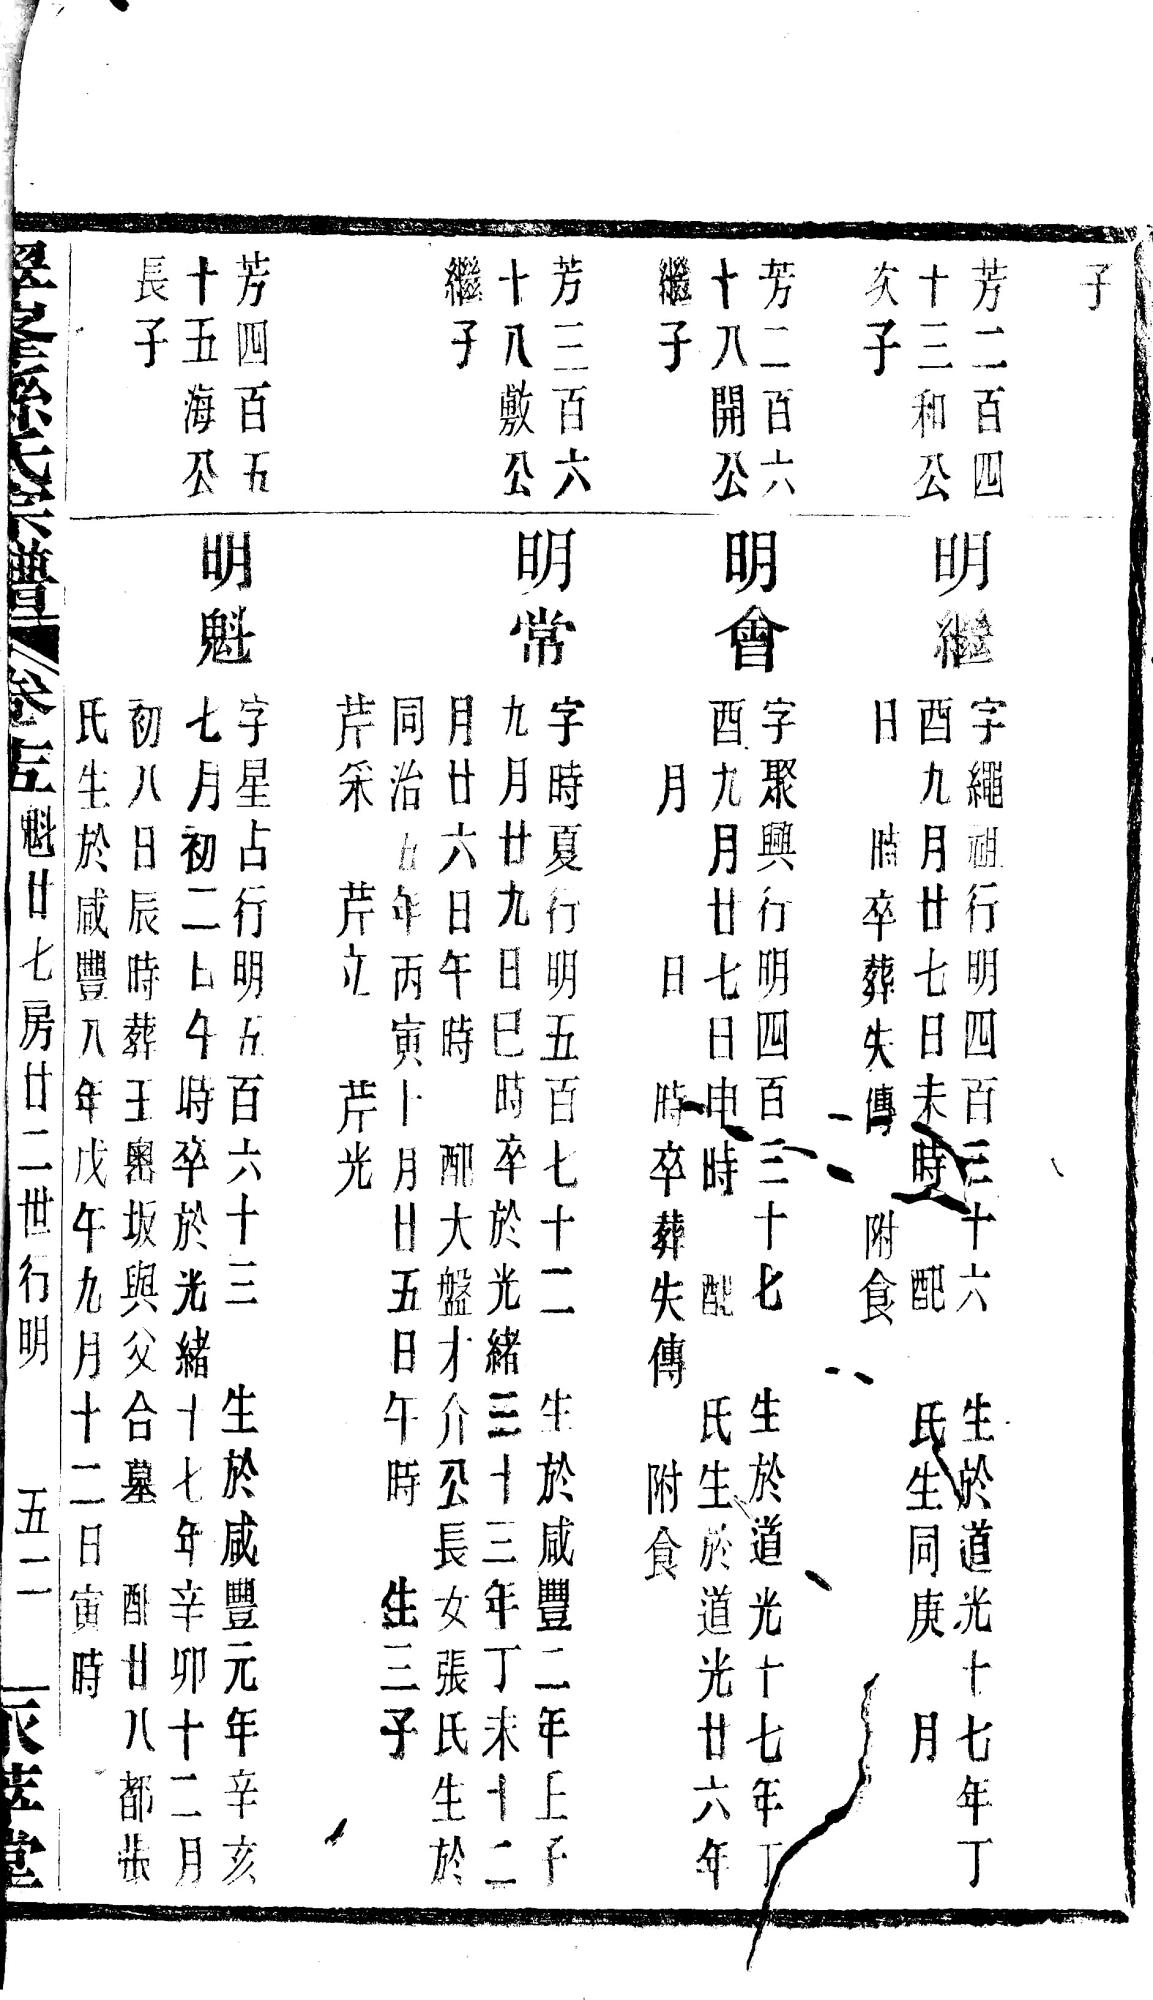 子
芳二百四
十三和公
次子
明繼
字繩祖行明四百三十六 生於道光十七年丁
酉九月廿七日未時 配 氏生同庚 月
日 時卒葬失傳 附食
芳二百六
十八開公
繼子
明會
字聚興行明四百三十七 生於道光十七年丁
酉九月廿七日申時 配 氏生於道光廿六年
月 日 時卒葬失傳 附食
芳三百六
十八敷公
繼子
明常
字時夏行明五百七十二 生於咸豐二年上子
九月廿九日巳時卒於光緒三十三年丁未十二
月廿六日午時 配大盤才介公長女張氏生於
同治五年丙寅十月廿五日午時 生三子
芹采 芹立 芹光
芳四百五
十五海公
長子
明魁
字星占行明五百六十三 生於咸豐元年辛亥
七月初二日午時卒於光緒十七年辛卯十二月
初八日辰時葬王奧坂與父合墓 配廿八都張
氏生於咸豐八年戊午九月十二日寅時
孫氏宗譜 卷 魁廿七房廿二世行明 五二 堂